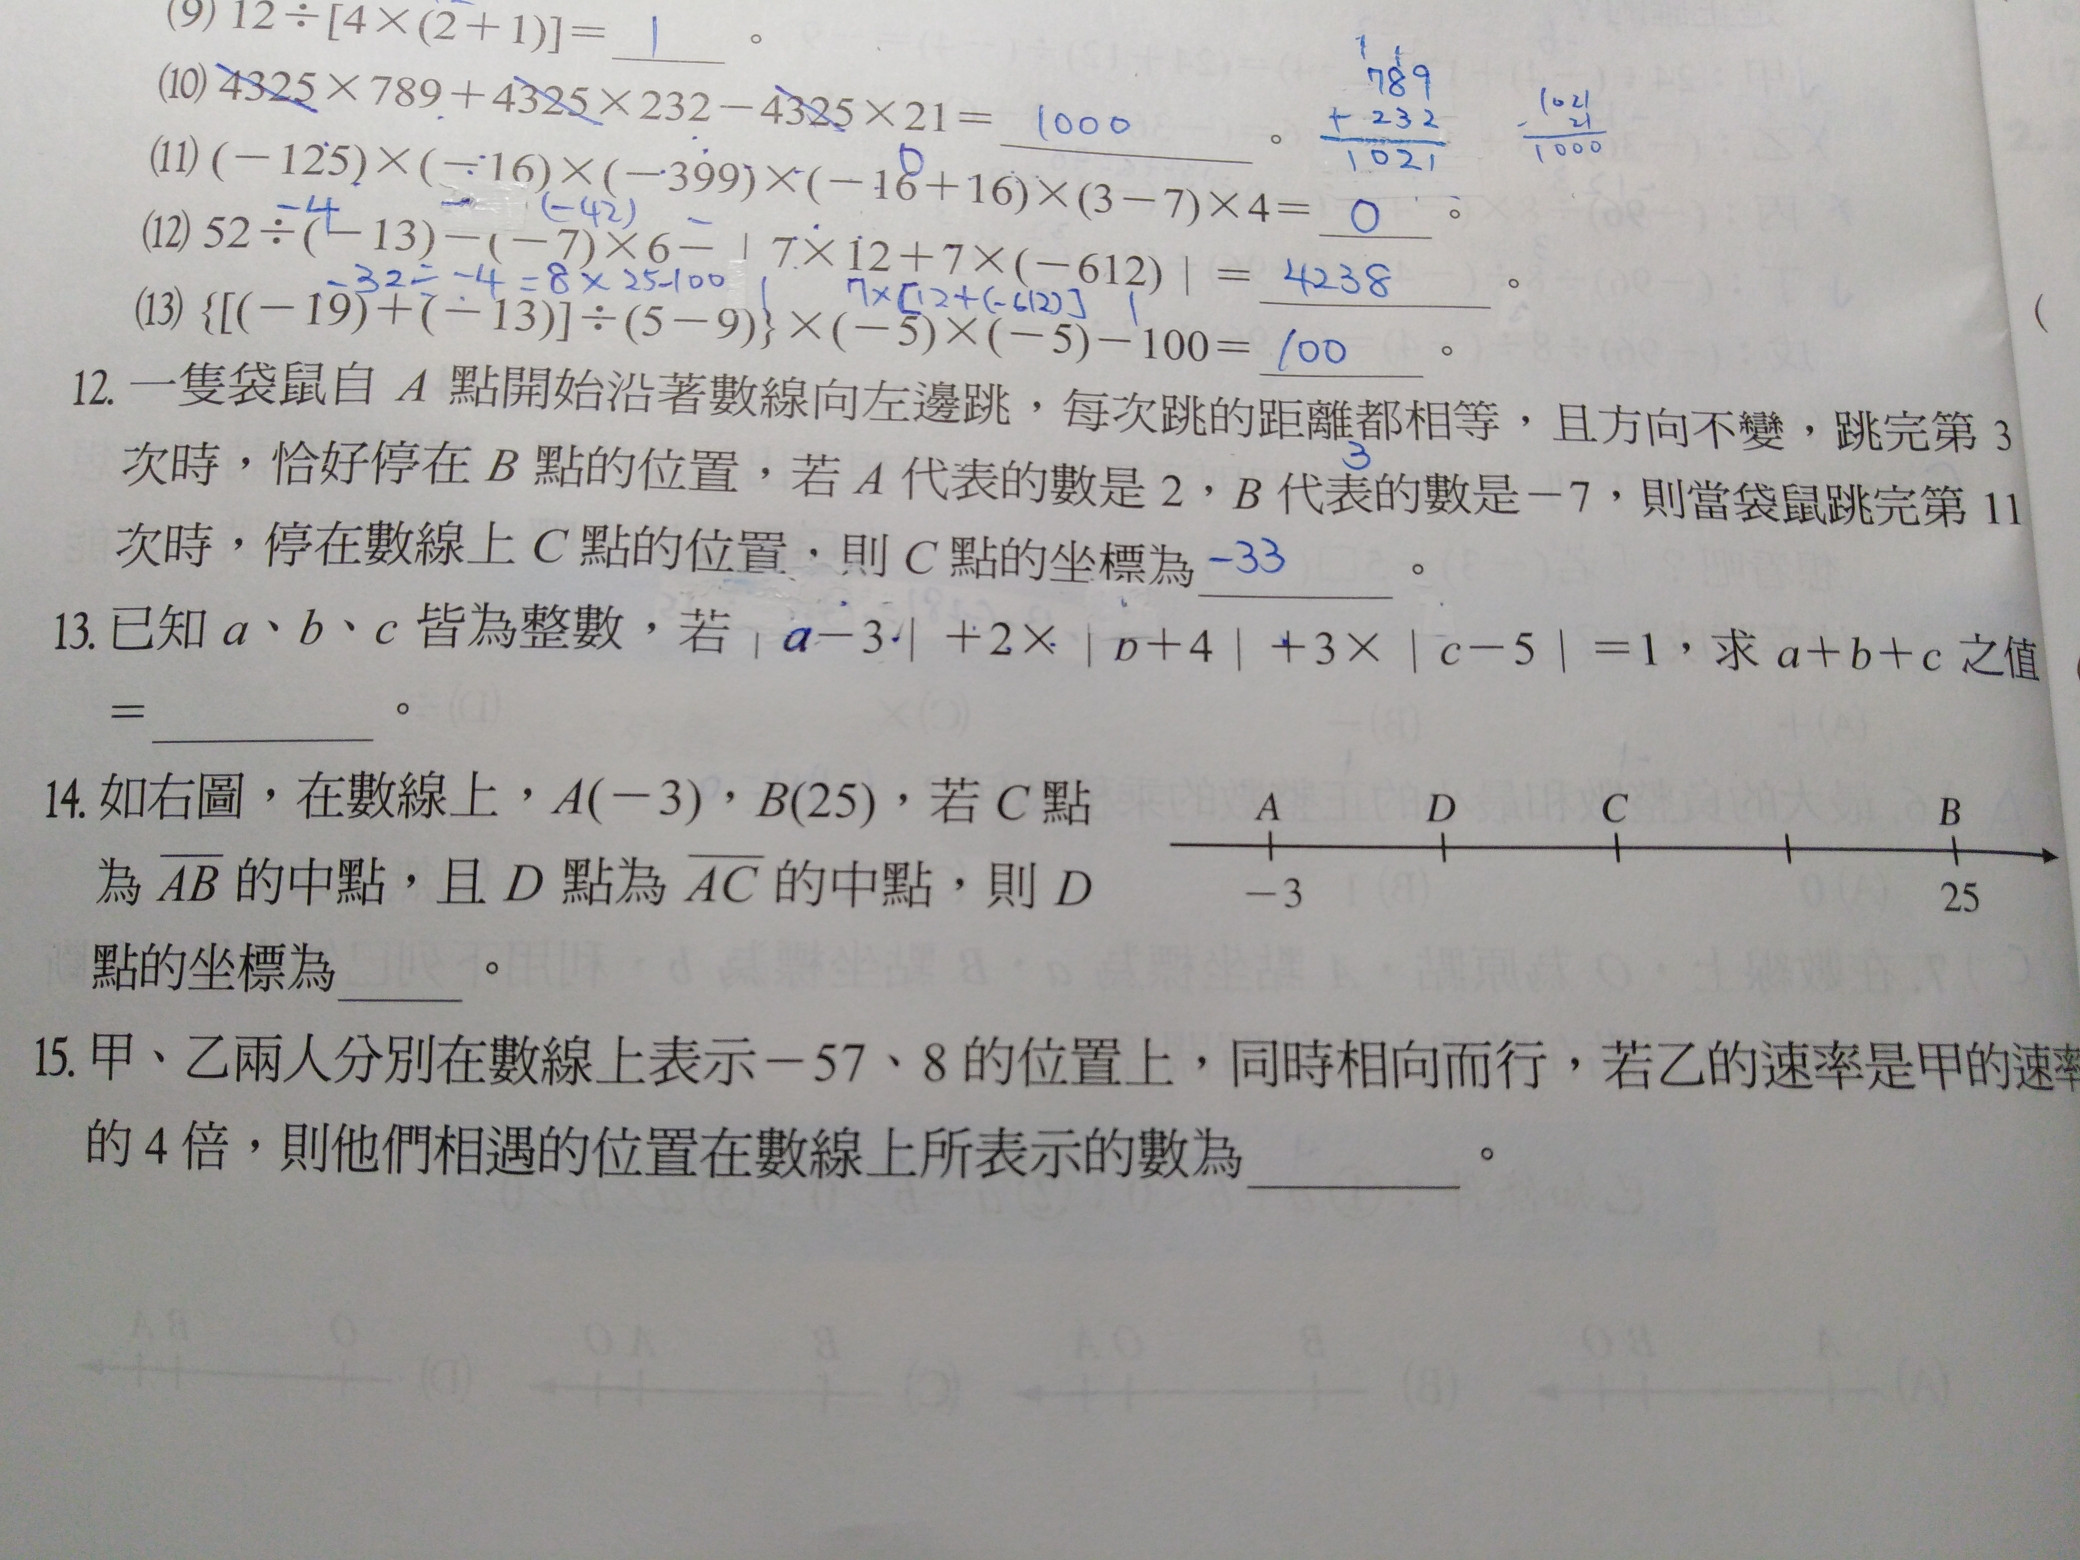 (9) 12÷[4×(2+1)]= 1 。
(10) 4325×789+4325×232−4325×21= 1000 。
789
+ 232
1021
1021
- 21
1000
0
(11) (−125)×(−16)×(−399)×(−16+16)×(3−7)×4= 0 。
-4 (-42)
(12) 52÷(−13)−(−7)×6−|7×12+7×(−612)|= 4238 。
-32÷-4=8×25-100 | 7×[12+(-612)] |
(13) {[(−19)+(−13)]÷(5−9)}×(−5)×(−5)−100= 100 。
12. 一隻袋鼠自 A 點開始沿著數線向左邊跳，每次跳的距離都相等，且方向不變，跳完第 3
3
次時，恰好停在 B 點的位置，若 A 代表的數是 2，B 代表的數是−7，則當袋鼠跳完第 11
次時，停在數線上 C 點的位置，則 C 點的坐標為 -33 。
13. 已知 a、b、c 皆為整數，若｜a−3｜+2×｜b+4｜+3×｜c−5｜=1，求 a+b+c 之值
= 。
14. 如右圖，在數線上，A(−3)，B(25)，若 C 點
為 AB 的中點，且 D 點為 AC 的中點，則 D
點的坐標為 。
A D C B
−3 25
15. 甲、乙兩人分別在數線上表示−57、8 的位置上，同時相向而行，若乙的速率是甲的速率
的 4 倍，則他們相遇的位置在數線上所表示的數為 。